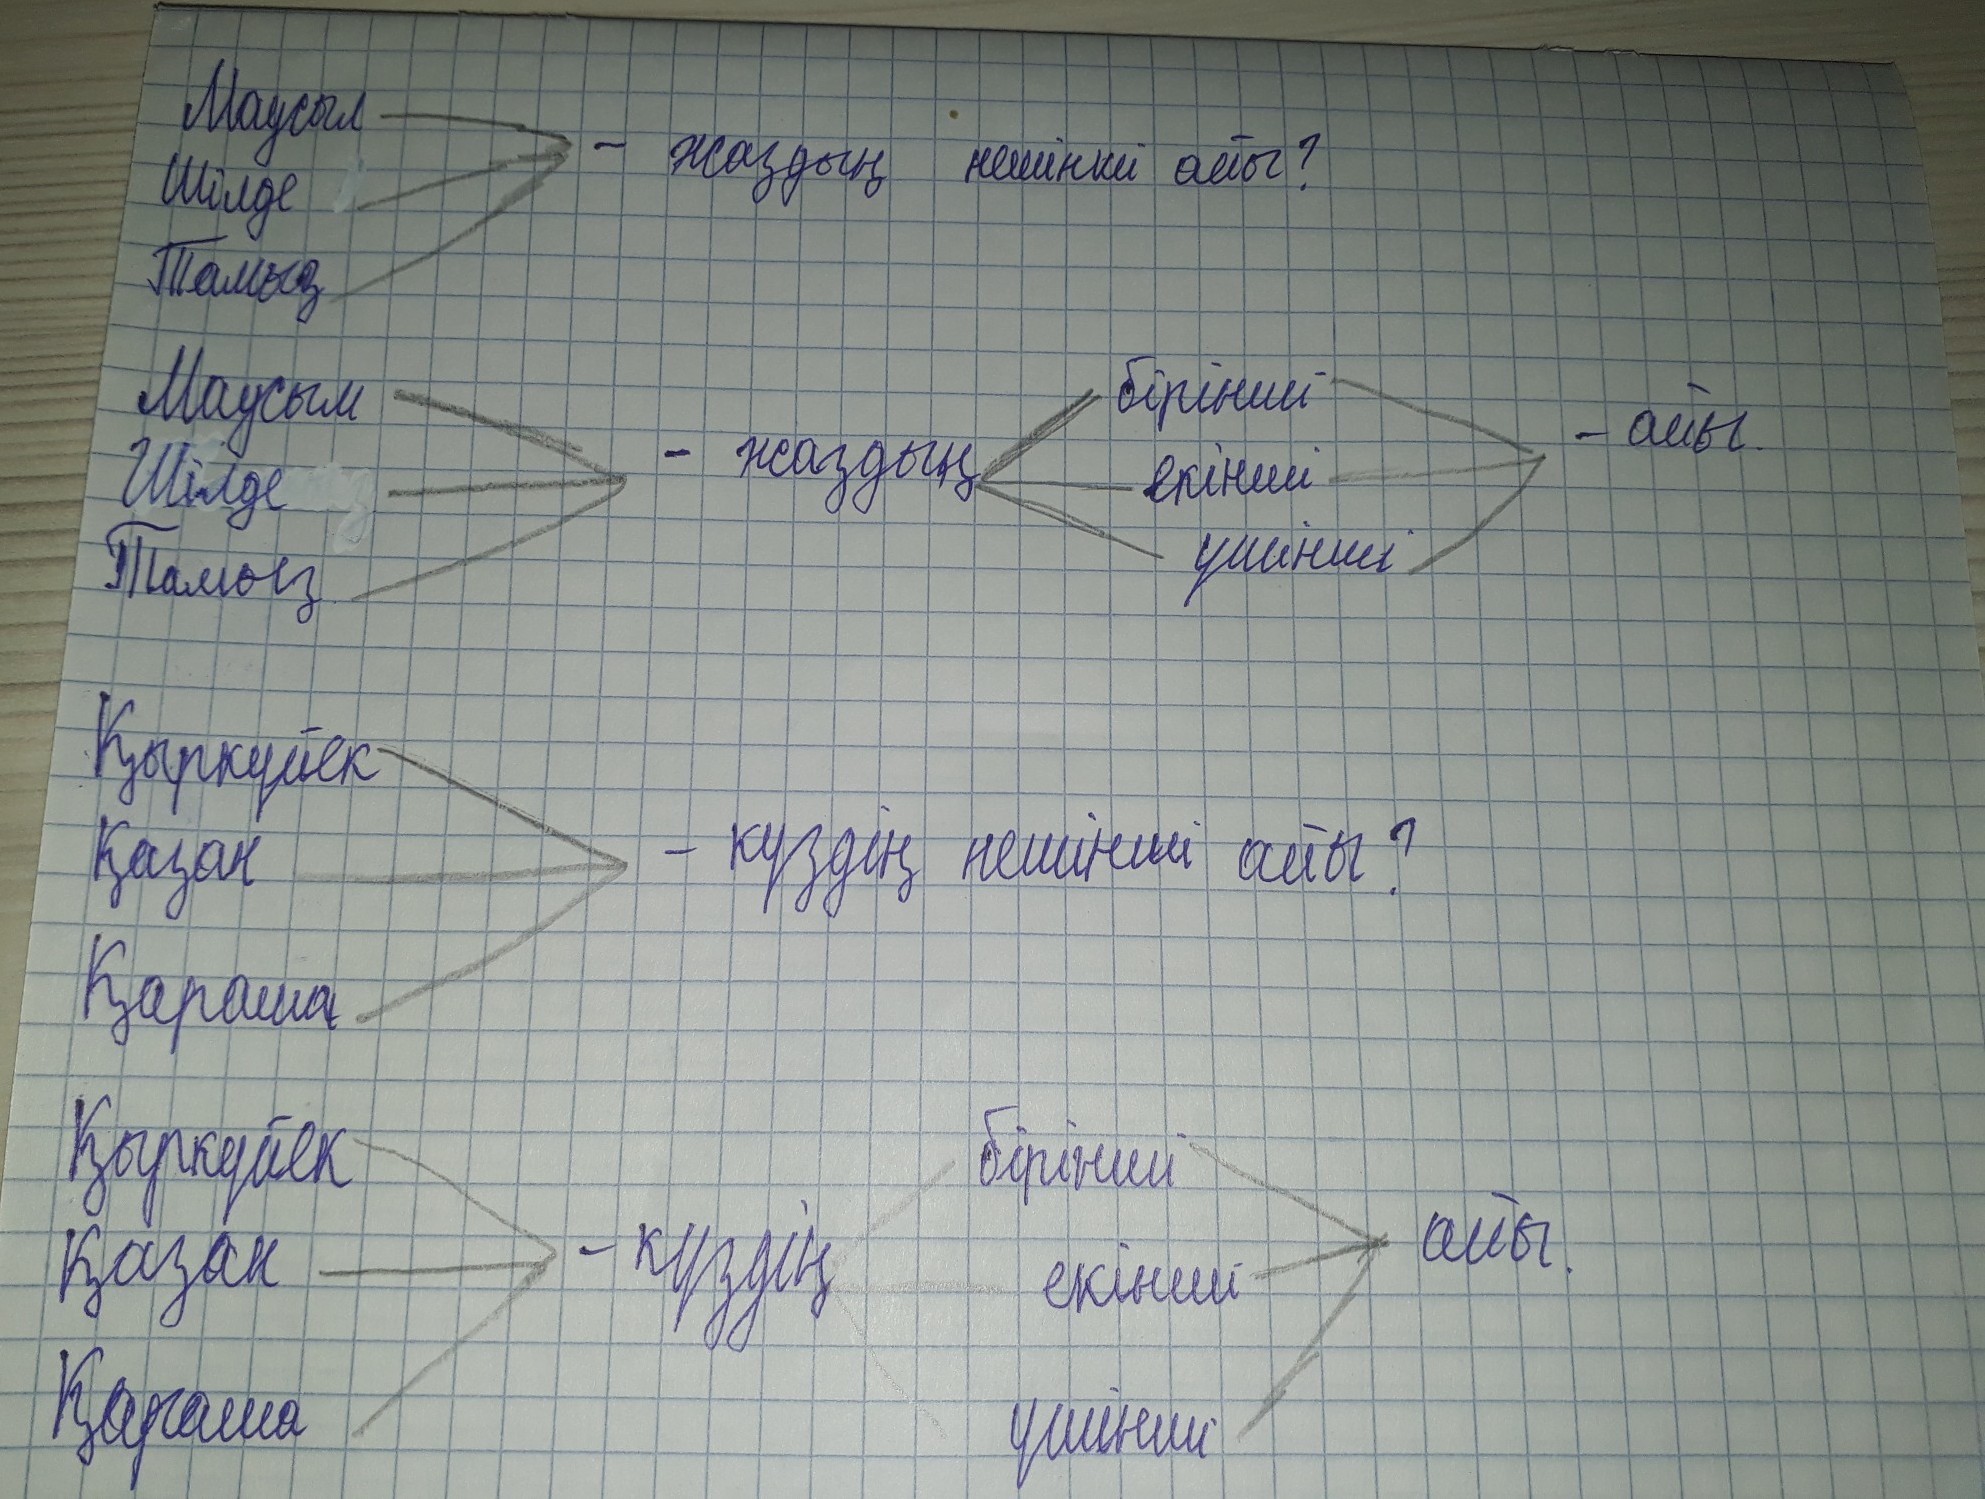 Маусым
Шілде
Тамыз
- жаздың нешінкі айы?
Маусым
Шілде
Тамыз
- жаздың
бірінші
екінші
үшінші
- айы.
Қыркүйек
Қазан
Қараша
- күздің нешінші айы?
Қыркүйек
Қазан
Қараша
- күздің
бірінші
екінші
үшінші
айы.